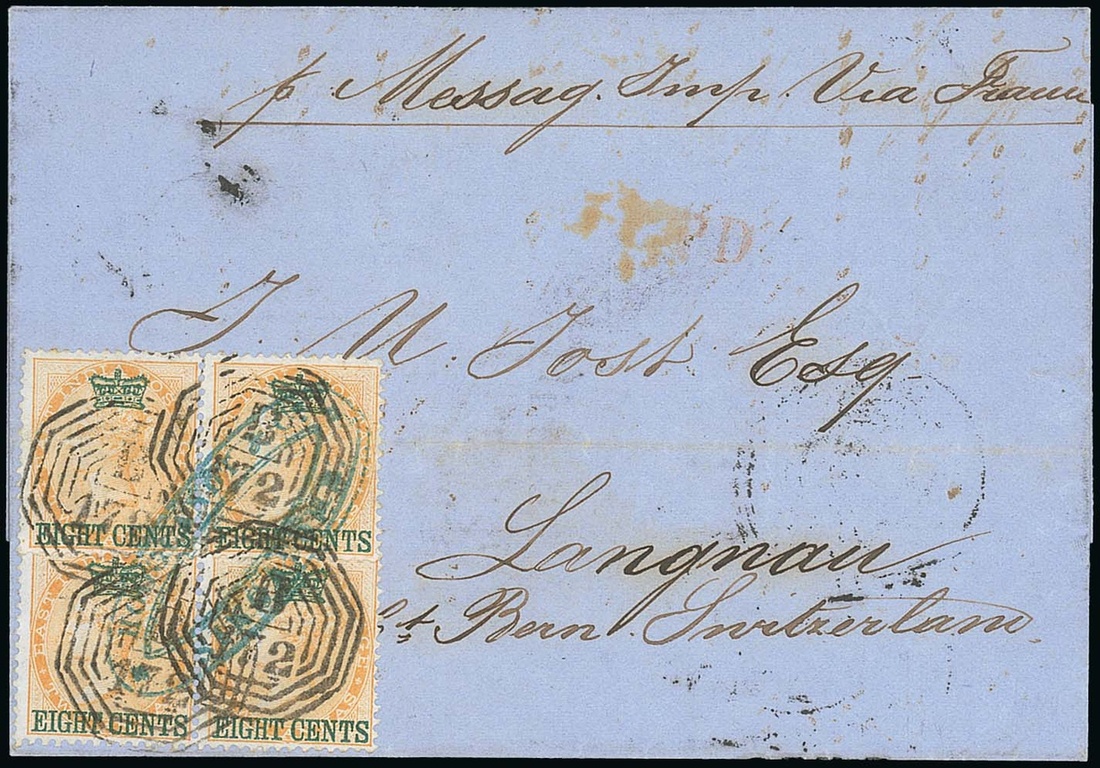 p Messag. Imp. Via France
PD
J. U. Jost Esq
Langnau
Ct Bern. Switzerland.
EIGHT CENTS
EIGHT CENTS
B
172
EIGHT CENTS
EIGHT CENTS
EAST
B
172